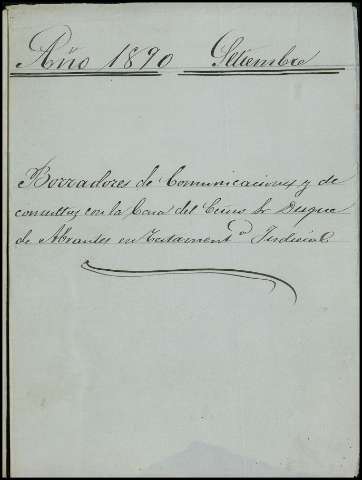 Año 1890 Setiembre
Borradores de Comunicaciones y de
consultas con la Casa del Excmo Sr Duque
de Abrantes en Testament.ª Judicial